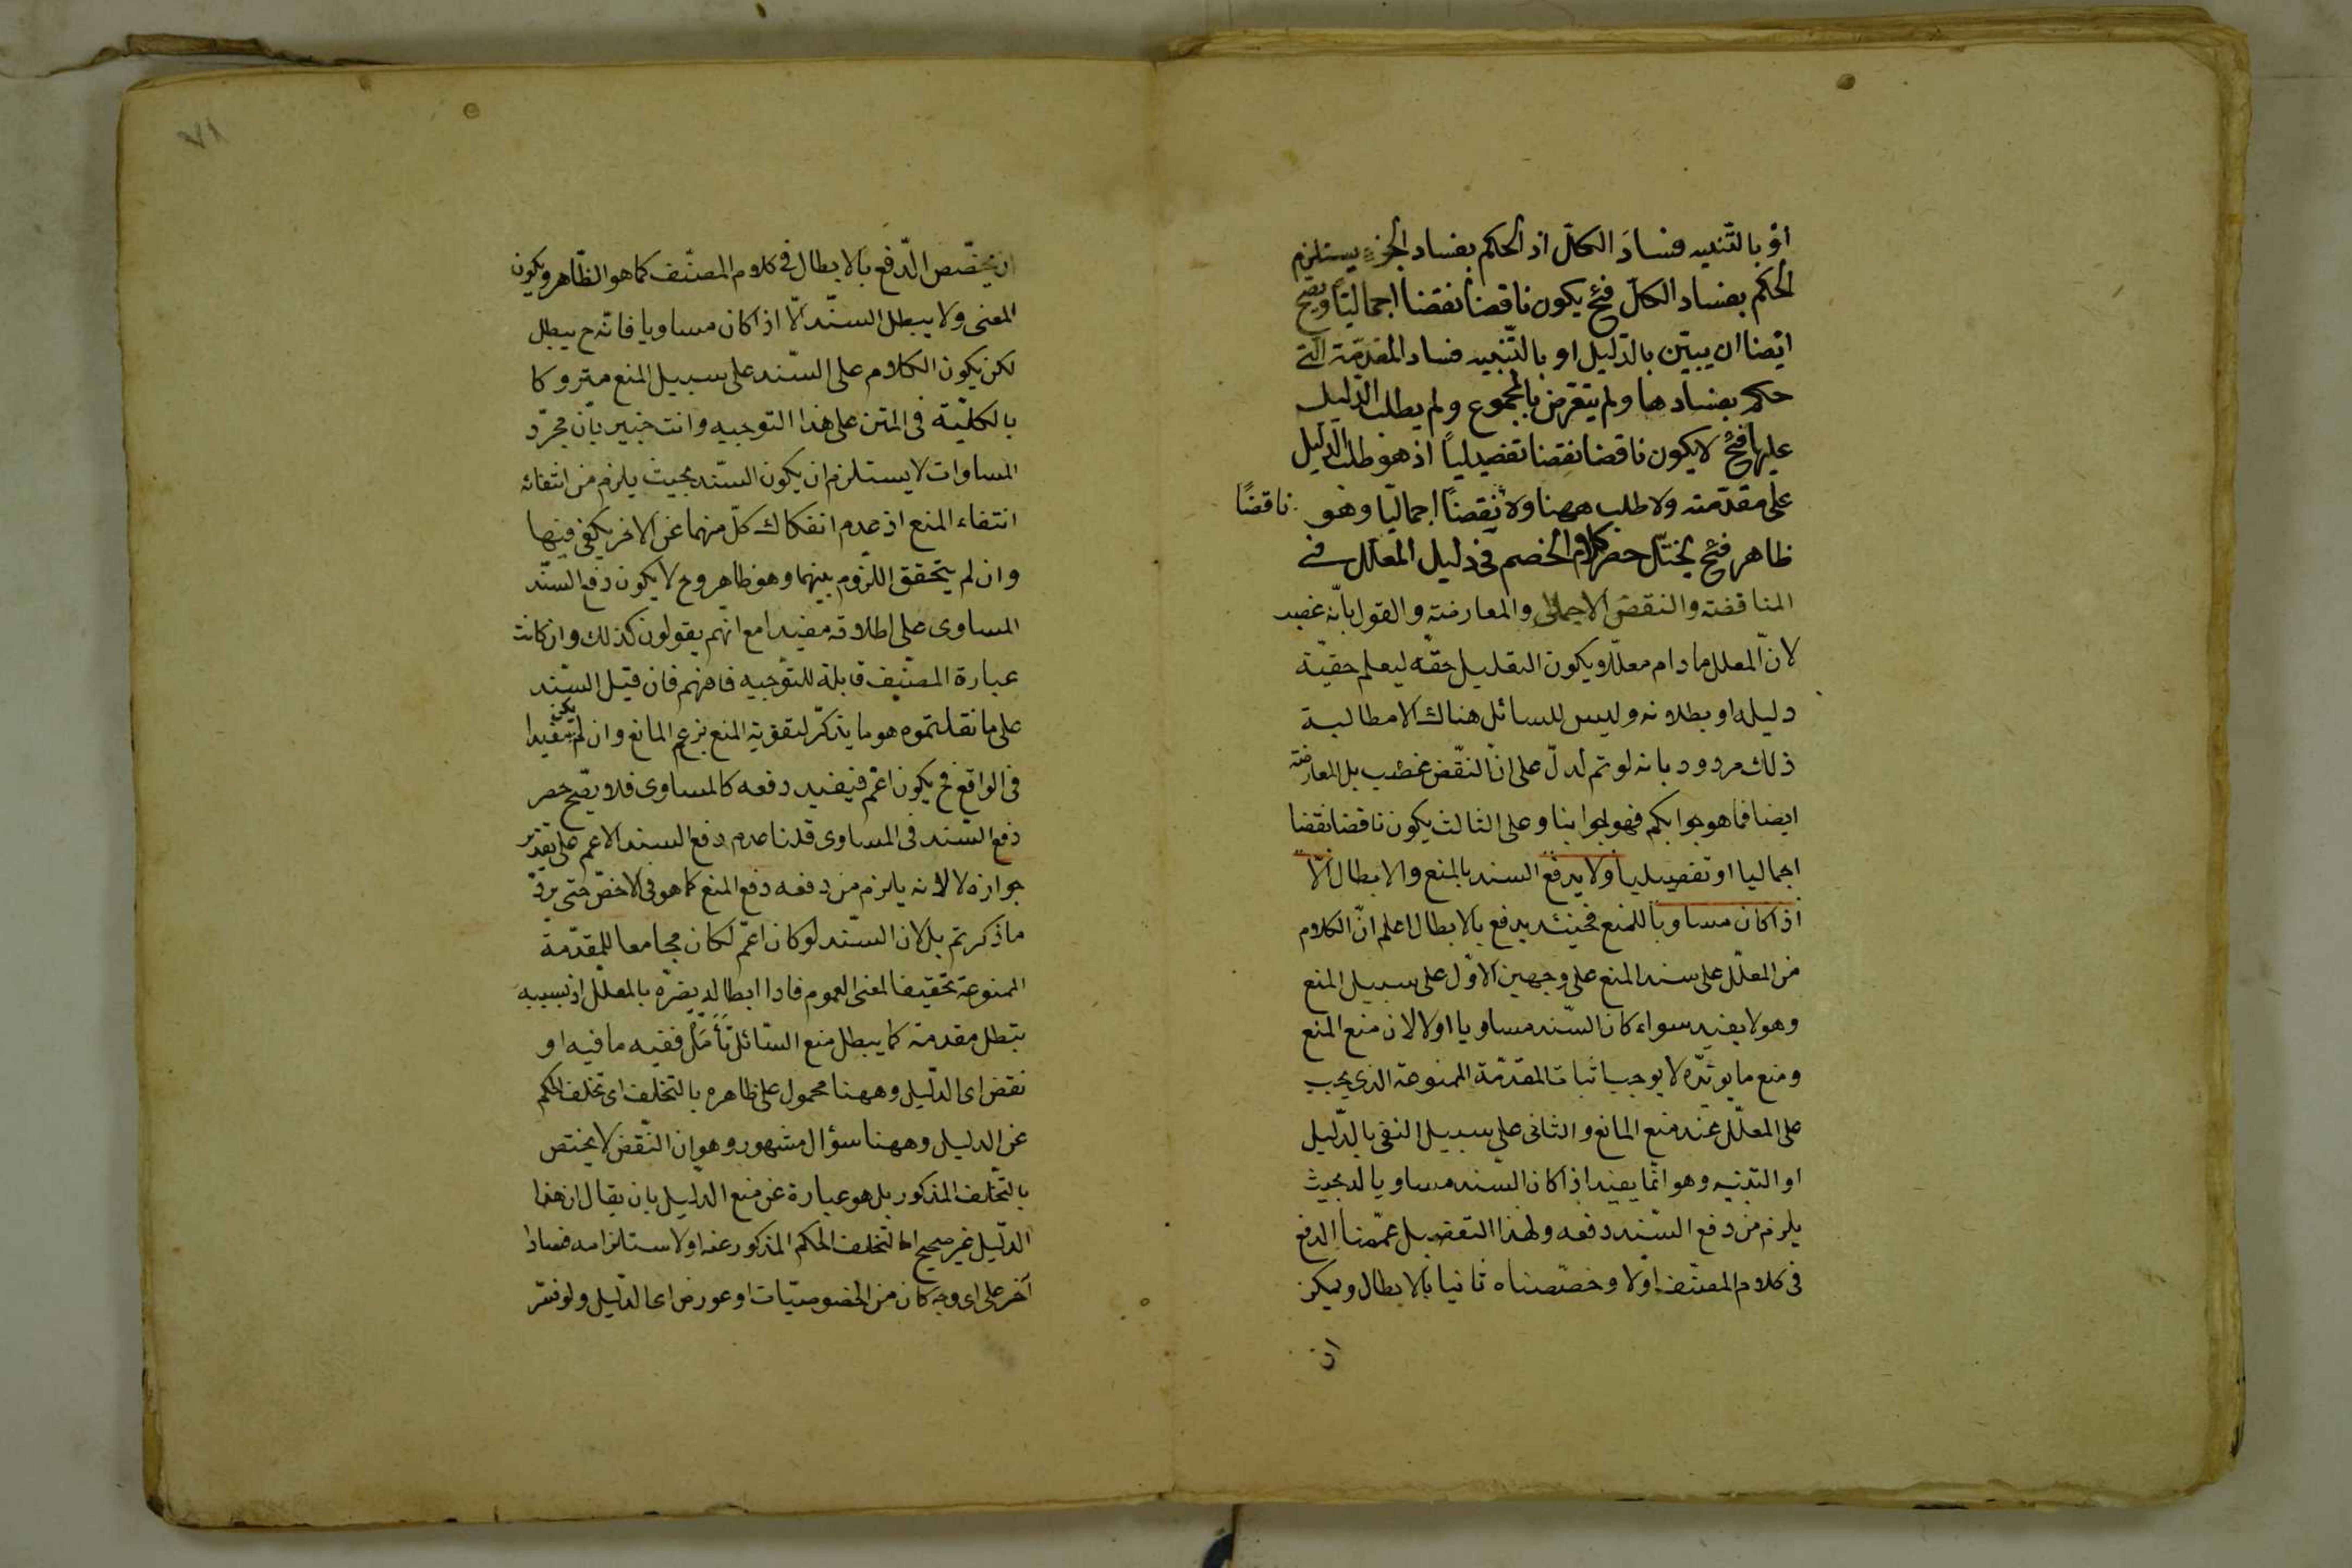 او بالتنبيه فسادَ الكلّ اذ الحكم بفساد الجزء يستلزم
الحكم بفساد الكلّ فح يكون ناقضا نقضا اجماليّاً ويصح
ايضا ان يبيّن بالدّليل او بالتّنبيه فساد المقدّمة التى
حكم بفسادها ولم يتعرض بالمجموع ولم يطلب الدّليل
عليها فح لا يكون ناقضا نقضا تفصيلياً اذ هو طلب الدّليل
على مقدّمته ولا طلب ههنا ولا نقضاً اجماليّا وهو ناقضًا
ظاهر فح يختلّ حصر كلام الخصم فى دليل المعلل فى
المناقضة والنقض الاجمالى والمعارضة والقول بانّه غصب
لانّ المعلل ما دام معلّلا ويكون التعليل حقّه ليعلم حقيّة
دليله او بطلانه وليس للسائل هناك الا مطالبة
ذلك مردود بانه لو تم لدلّ على انّ النّقض غصب بل المعارضة
ايضا فما هو جوابكم فهو جوابنا وعلى الثالث يكون ناقضا نقضا
اجماليا او تفصيليا ولا يدفع السند بالمنع والابطال الّا
اذا كان مساويا للمنع فحينئذ يدفع بالابطال اعلم انّ الكلام
من المعلّل على سند المنع على وجهين الاوّل على سبيل المنع
وهو لا يفيد سواء كان السّند مساويا اولا لان منع المنع
ومنع ما يوئيّده لا يوجب اثبات المقدّمة الممنوعة الذى يجب
على المعلّل عند منع المانع والثانى على سبيل النفى بالدّليل
او التنبيه وهو انّما يفيد اذا كان السّند مساويا له بحيث
يلزم من دفع السّند دفعه ولهذا التفصيل عمّمنا الدفع
فى كلام المصنّف اوّلا وخصّصناه ثانيا بالابطال ويمكن
ان
ان يخصّص الدّفع بالابطال فى كلام المصنّف كما هو الظّاهر ويكون
المعنى ولا يبطل السنّد الّا اذا كان مساويا فانّه ح يبطل
لكن يكون الكلام على السّند على سبيل المنع متروكا
بالكلّيّة فى المتن على هذا التوجيه وانت خبير بان مجرّد
المساوات لا يستلزم ان يكون السّند بحيث يلزم من انتفائه
انتفاء المنع اذ عدم انفكاك كلّ منهما عن الاخر يكفى فيها
وان لم يتحقق اللزوم بينهما وهو ظاهر وح لا يكون دفع السنّد
المساوى على اطلاقه مفيدا مع انهم يقولون كذلك وان كانت
عبارة المصنّف قابلة للتّوجيه فافهم فان قيل السّند
على ما نقلتموه هو ما يذكر لتقوية المنع بزعم المانع وان لم يكن مفيدا
فى الواقع فح يكون اعم فيفيد دفعه كالمساوى فلا يصّح حصر
دفع السّند فى المساوى قلنا عدم دفع السند الاعم على تقدير
جوازه لا لانه يلزم من دفعه دفع المنع كما هو فى الاخصّ حتى يردّ
ما ذكرتم بل لان السّند لو كان اعمّ لكان مجامعا للمقدّمة
الممنوعة تحقيقا لمعنى العموم فاذا ابطاله يضرّه بالمعلّل اذ بسببه
يبطل مقدمته كما يبطل منع السّائل تأمّل ففيه ما فيه او
نقض اى الدّليل وههنا محمول على ظاهره بالتخلف اى تخلف الحكم
عن الدليل وههنا سؤال مشهور وهو ان النّقض لا يختص
بالتخلّف المذكور بل هو عبارة عن منع الدّليل بان يقال ان هذا
الدّليل غير صحيح اما لتخلف الحكم المذكور عنه او لاستلزامه فسادا
آخر على اى وجه كان من الخصوصيّات او عورض اى الدّليل ولو فسّر